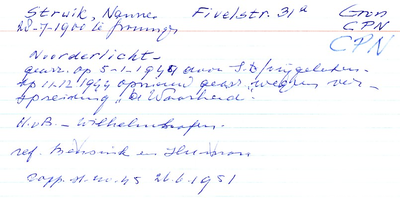 Struik, Nanne. Fivelstr. 31a Gron
20-7-1900 te Groningen CPN
CPN
Noorderlicht-
gearr. op 5-1-1944 door S.D/vrijgelaten.
op 11.12.1944 opnieuw gearr. wegens ver-
spreiding "de Waarheid.
H.v.B. - Wilhelmshafen.
ref. Bensink en
rapp. st. nr. 45 26.6.1951